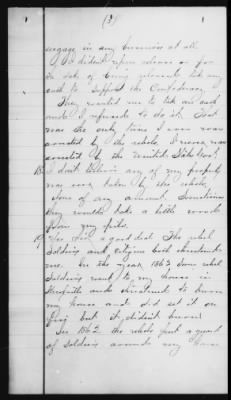 (3)
1
1
engage in any business at all.
I didn't upon release or for
the sake of being released take any
oath to support the Confederacy.
They wanted me to take an oath
and I refused to do it. That
was the only time I ever was
arrested by the rebels. I never was
arrested by the United States Govt.
18 I don't believe any of my property
was ever taken by the rebels,
None of any amount. Sometimes
they would take a little wood
from my piles.
19 Yes Sir, a good deal. The rebel
soldiers and citizens both threatened
me. In the year 1863 some rebel
soldiers went to my house in
and threatened to burn
my house and did set it on
fire but it didn't burn.
In 1862 the rebels put a guard
of soldiers around my house